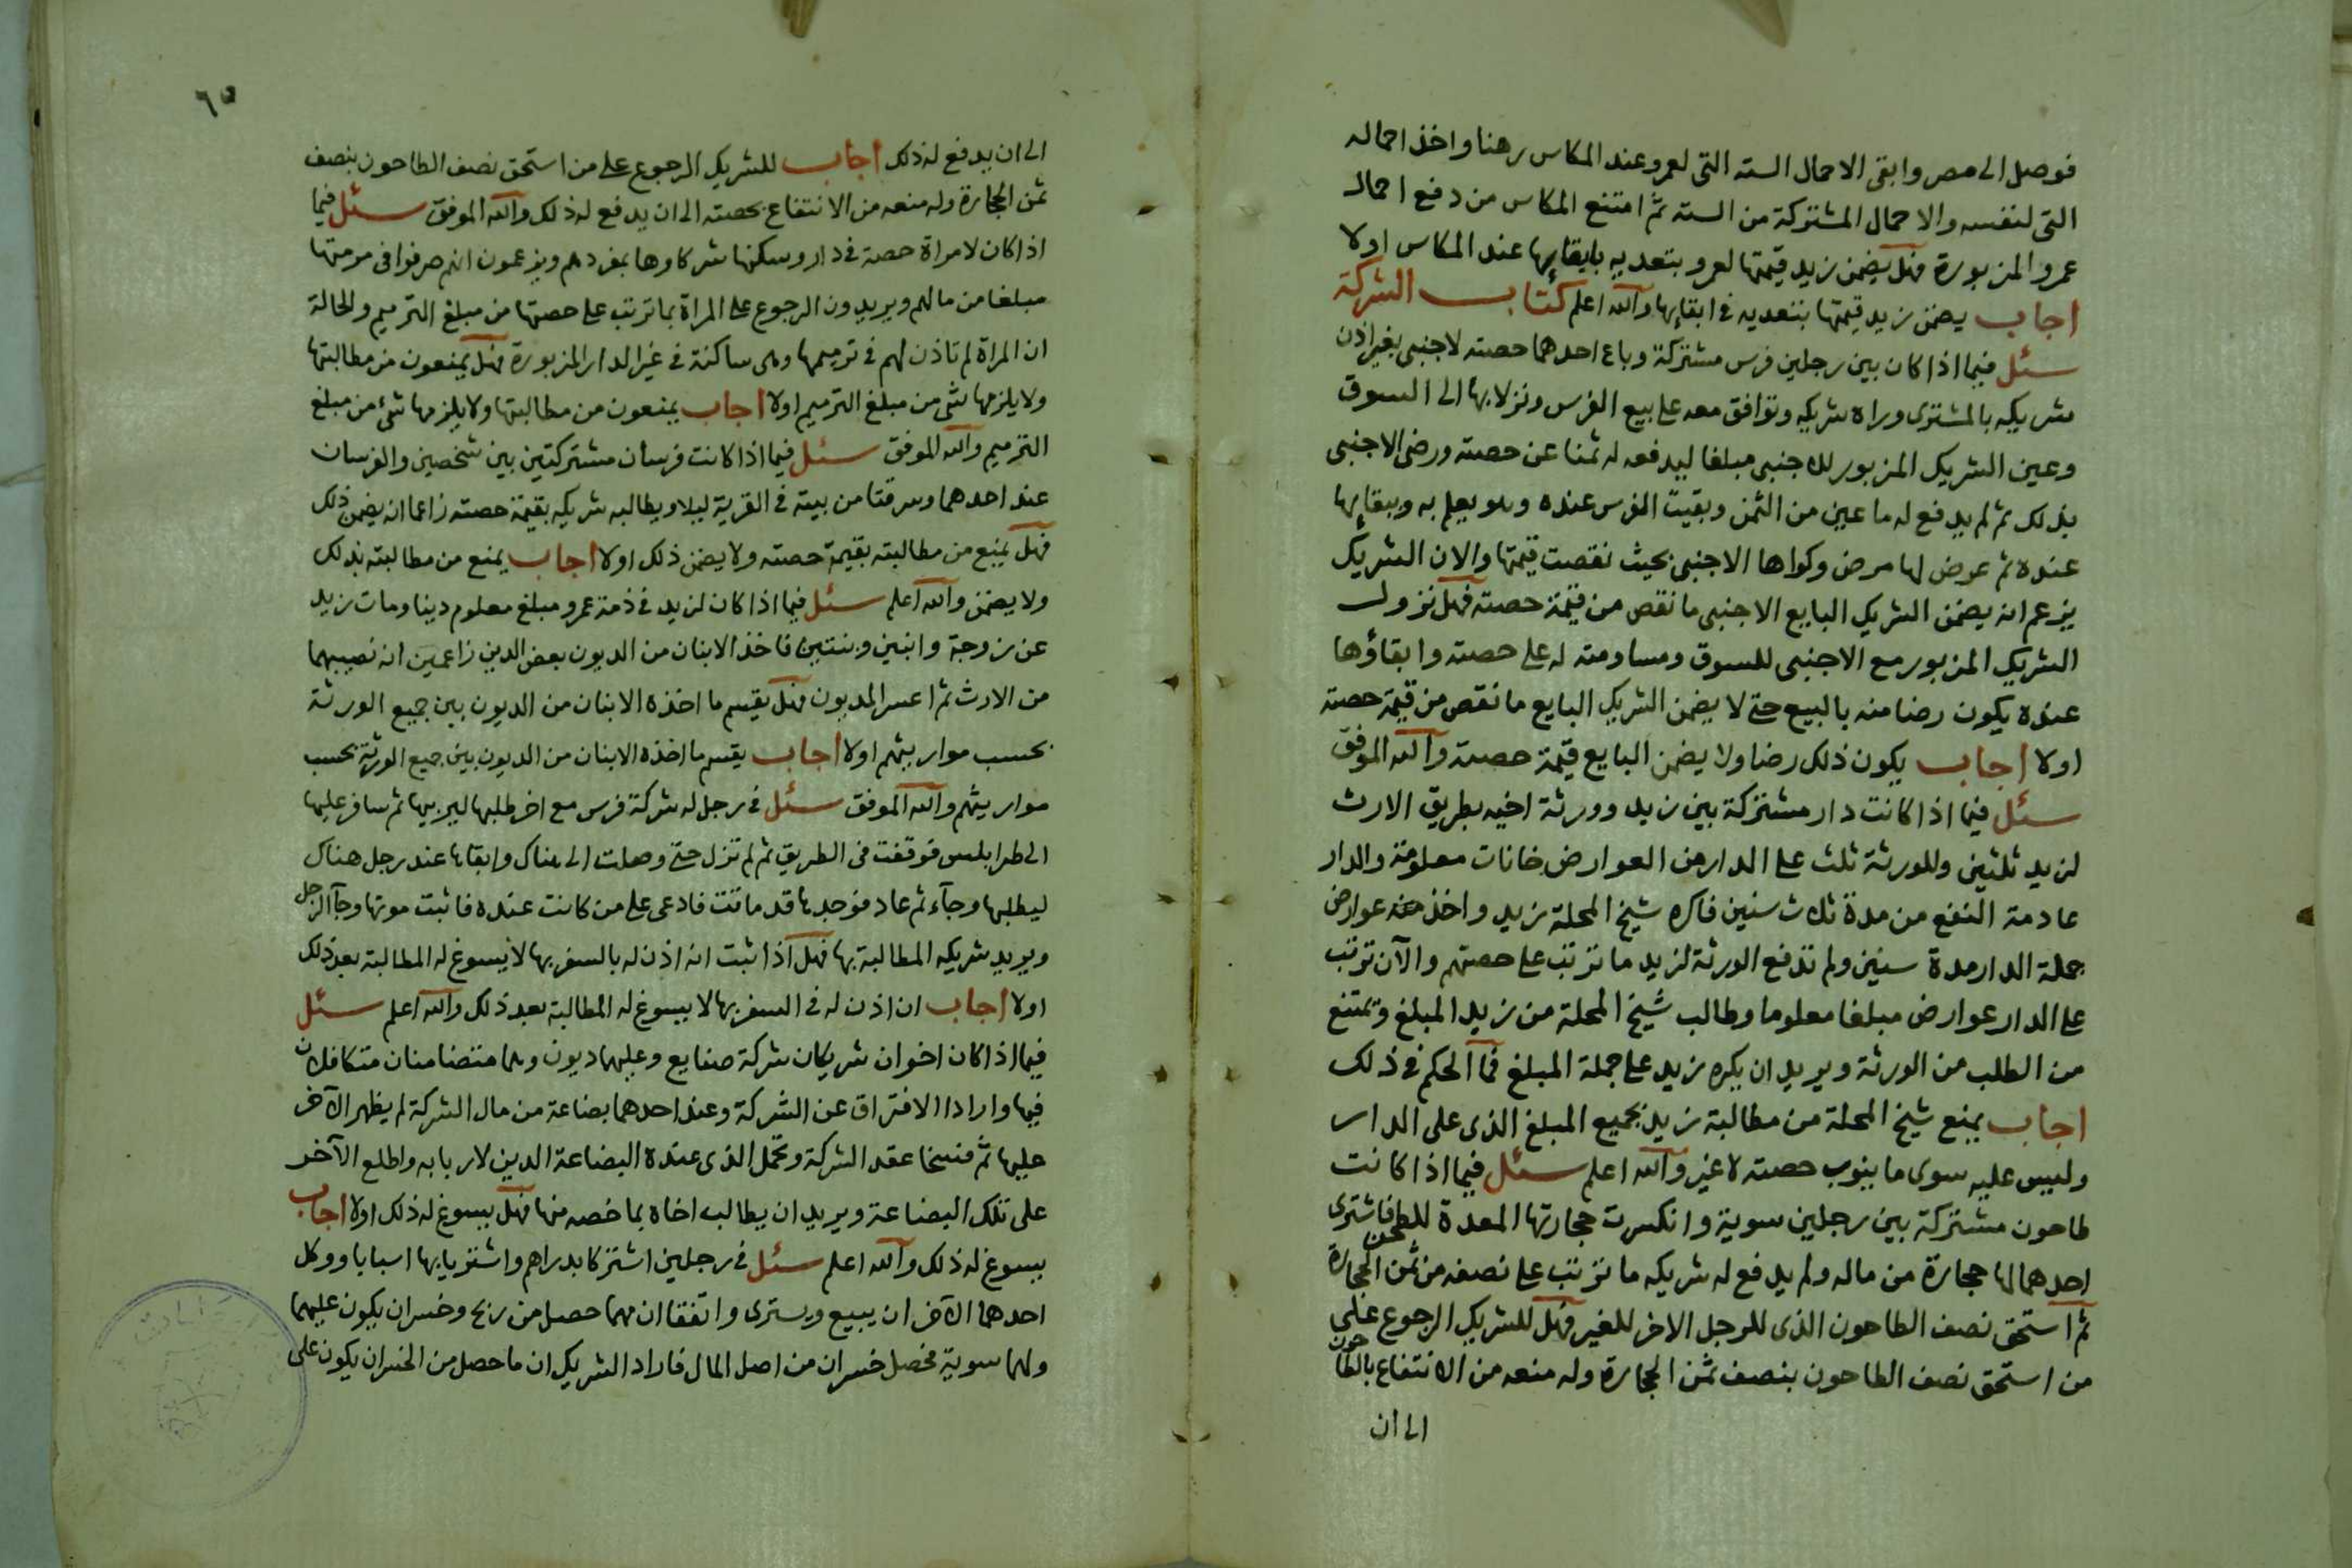 فوصل الى مصر وابقى الاحمال السته التى لعمرو عند المكاس رهنا واخذ احماله
التى لنفسه والاحمال المشتركة من السته ثم امتنع المكاس من دفع احمال
عمرو المزبورة فهل يضمن زيد قيمتها لعمرو بتعديه بايقايها عند المكاس اولا
اجاب يضمن زيد قيمتها بتعديه فى ابقايها والله اعلم كتاب الشركة
سئل فيما اذا كان بين رجلين فرس مشتركة وباع احدهما حصته لاجنبى بغير اذن
شريكه بالمشترى وراه شريكه وتوافق معه على بيع الفرس ونزلا بها الى السوق
وعين الشريك المزبور للاجنبى مبلغا ليدفعه له ثمنا عن حصته ورضى الاجنبى
بذلك ثم لم يدفع له ما عين من الثمن وبقيت الفرس عنده وهو يعلم به وببقايها
عنده ثم عرض لها مرض وكواها الاجنبى بحيث نقصت قيمتها والان الشريك
يزعم انه يضمن الشريك البايع الاجنبى ما نقص من قيمة حصته فهل نزول
الشريك المزبور مع الاجنبى للسوق ومساومته له على حصته وابقاؤها
عنده يكون رضا منه بالبيع حتى لا يضمن الشريك البايع ما نقص من قيمة حصته
اولا اجاب يكون ذلك رضا ولا يضمن البايع قيمة حصته والله الموفق
سئل فيما اذا كانت دار مشتركة بين زيد وورثة اخيه بطريق الارث
لزيد ثلثين وللورثة ثلث على الدار من العوارض خانات معلومة والدار
عادمة النفع من مدة ثلاث سنين فاكره شيخ المحلة زيد واخذ منه عوارض
جملة الدار مدة سنين ولم تدفع الورثة لزيد ما ترتب على حصتهم والآن ترتب
على الدار عوارض مبلغا معلوما وطالب شيخ المحلة من زيد المبلغ وتمتنع
من الطلب من الورثة ويريد ان يكره زيد على جملة المبلغ فما الحكم فى ذلك
اجاب يمنع شيخ المحلة من مطالبة زيد بجميع المبلغ الذى على الدار
وليس عليه سوى ما ينوب حصته لا غير والله اعلم سئل فيما اذا كانت
طاحون مشتركة بين رجلين سوية وانكسرت حجارتها المعدة للطحن فاشترى
احدهما لها حجارة من ماله ولم يدفع له شريكه ما ترتب على نصفه من ثمن الحجارة
ثم استحق نصف الطاحون الذى للرجل الاخر للغير فهل للشريك الرجوع على
من استحق نصف الطاحون بنصف ثمن الحجارة وله منعه من الانتفاع بالطاحون
الى ان
٦٥
الى ان يدفع له ذلك اجاب للشريك الرجوع على من استحق نصف الطاحون بنصف
ثمن الحجارة وله منعه من الانتفاع بحصته الى ان يدفع له ذلك والله الموفق سئل فيما
اذا كان لامراة حصة فى دار وسكنها شركاوها بمفردهم ويزعمون انهم صرفوا فى مرمتها
مبلغا من مالهم ويريدون الرجوع على المراة بما ترتب على حصتها من مبلغ الترميم والحالة
ان المراة لم تاذن لهم فى ترميمها وهى ساكنة فى غير الدار المزبورة فهل يمنعون من مطالبتها
ولا يلزمها شى من مبلغ الترميم اولا اجاب يمنعون من مطالبتها ولا يلزمها شئ من مبلغ
الترميم والله الموفق سئل فيما اذا كانت فرسان مشتركتين بين شخصين والفرسان
عند احدهما وسرقتا من بيته فى القرية ليلا ويطالبه شريكه بقيمة حصته زاعما انه يضمن ذلك
فهل يمنع من مطالبته بقيمة حصته ولا يضمن ذلك اولا اجاب يمنع من مطالبته بذلك
ولا يضمن والله اعلم سئل فيما اذا كان لزيد فى ذمة عمرو مبلغ معلوم دينا ومات زيد
عن زوجة وابنين وبنتين فاخذ الابنان من الديون بعض الدين زاعمين انه نصيبهما
من الارث ثم اعسر المديون فهل يقسم ما اخذه الابنان من الديون بين جميع الورثة
بحسب مواريثهم اولا اجاب يقسم ما اخذه الابنان من الديون بين جميع الورثة بحسب
مواريثهم والله الموفق سئل فى رجل له شركة فرس مع اخر طلبها ليربيها ثم سافر عليها
الى طرابلس فوقفت فى الطريق ثم لم تزل حتى وصلت الى هناك وابقاها عند رجل هناك
ليطلبها وجآء ثم عاد فوجدها قد ماتت فادعى على من كانت عنده فاثبت موتها وجآ الرجل
ويريد شريكه المطالبة بها فهل اذا ثبت انه اذن له بالسفر بها لا يسوغ له المطالبة بعد ذلك
اولا اجاب ان اذن له فى السفر بها لا يسوغ له المطالبة بعد ذلك والله اعلم سئل
فيما اذا كان اخوان شريكان شركة صنايع وعليهما ديون وهما متضامنان متكافلان
فيها وارادا الافتراق عن الشركة وعند احدهما بضاعة من مال الشركة لم يظهر الآخر
عليها ثم فسخا عقد الشركة وتحمل الذى عنده البضاعة الدين لاربابه واطلع الآخر
على تلك البضاعة ويريد ان يطالب اخاه بما خصه منها فهل يسوغ له ذلك اولا اجاب
يسوغ له ذلك والله اعلم سئل فى رجلين اشتركا بدراهم واشتريا بها اسبابا ووكل
احدهما الآخر ان يبيع ويشترى واتفقا ان مهما حصل من ربح وخسران يكون عليهما
ولهما سوية فحصل خسران من اصل المال فاراد الشريك ان ما حصل من الخسران يكون على